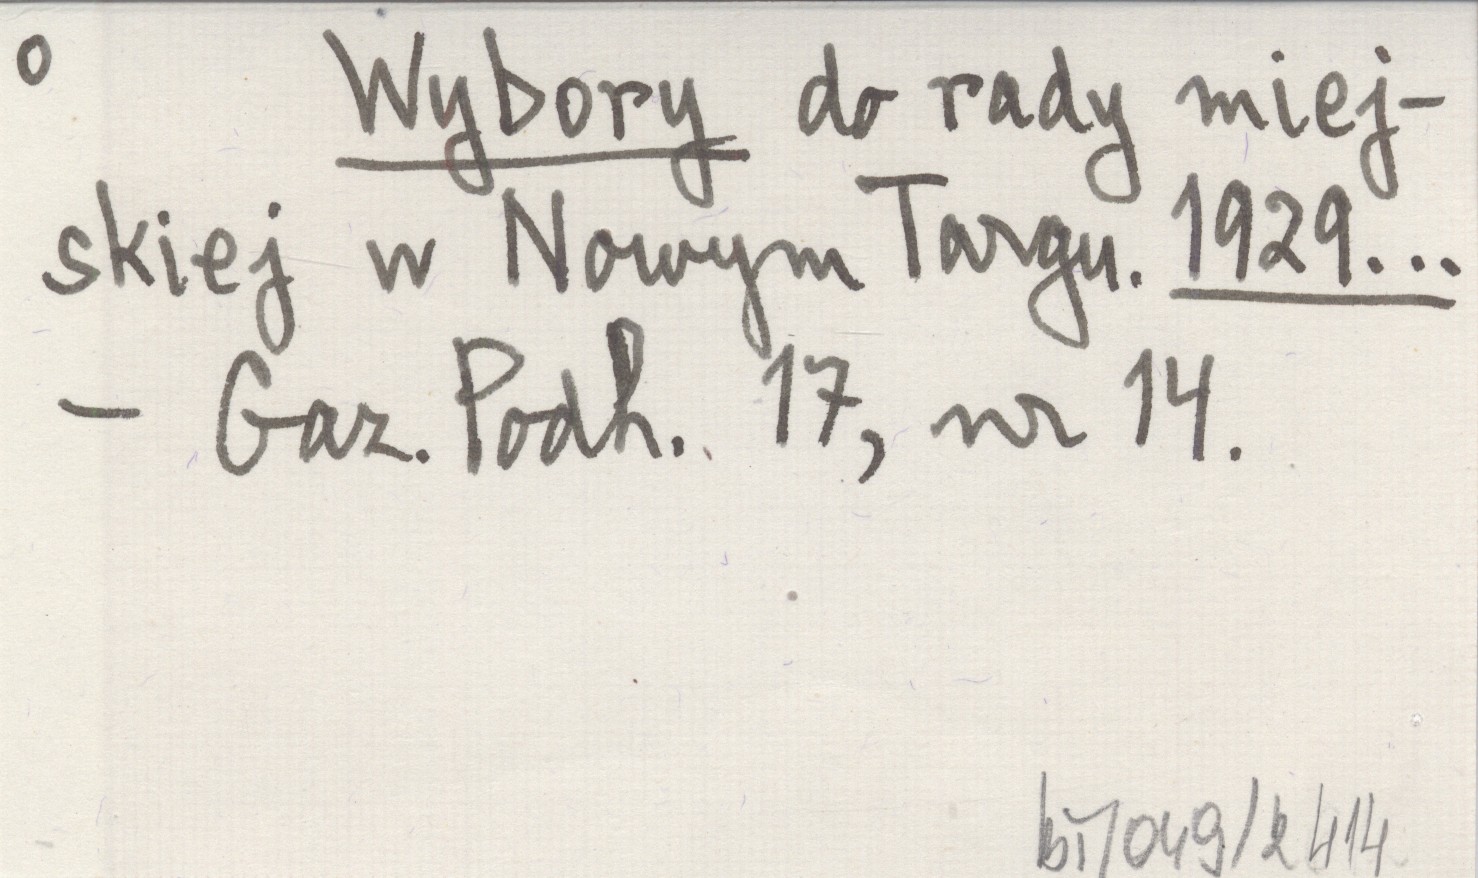 o Wybory do rady miej-
skiej w Nowym Targu. 1929...
- Gaz. Podh. 17, nr 14.
bí/049/2414